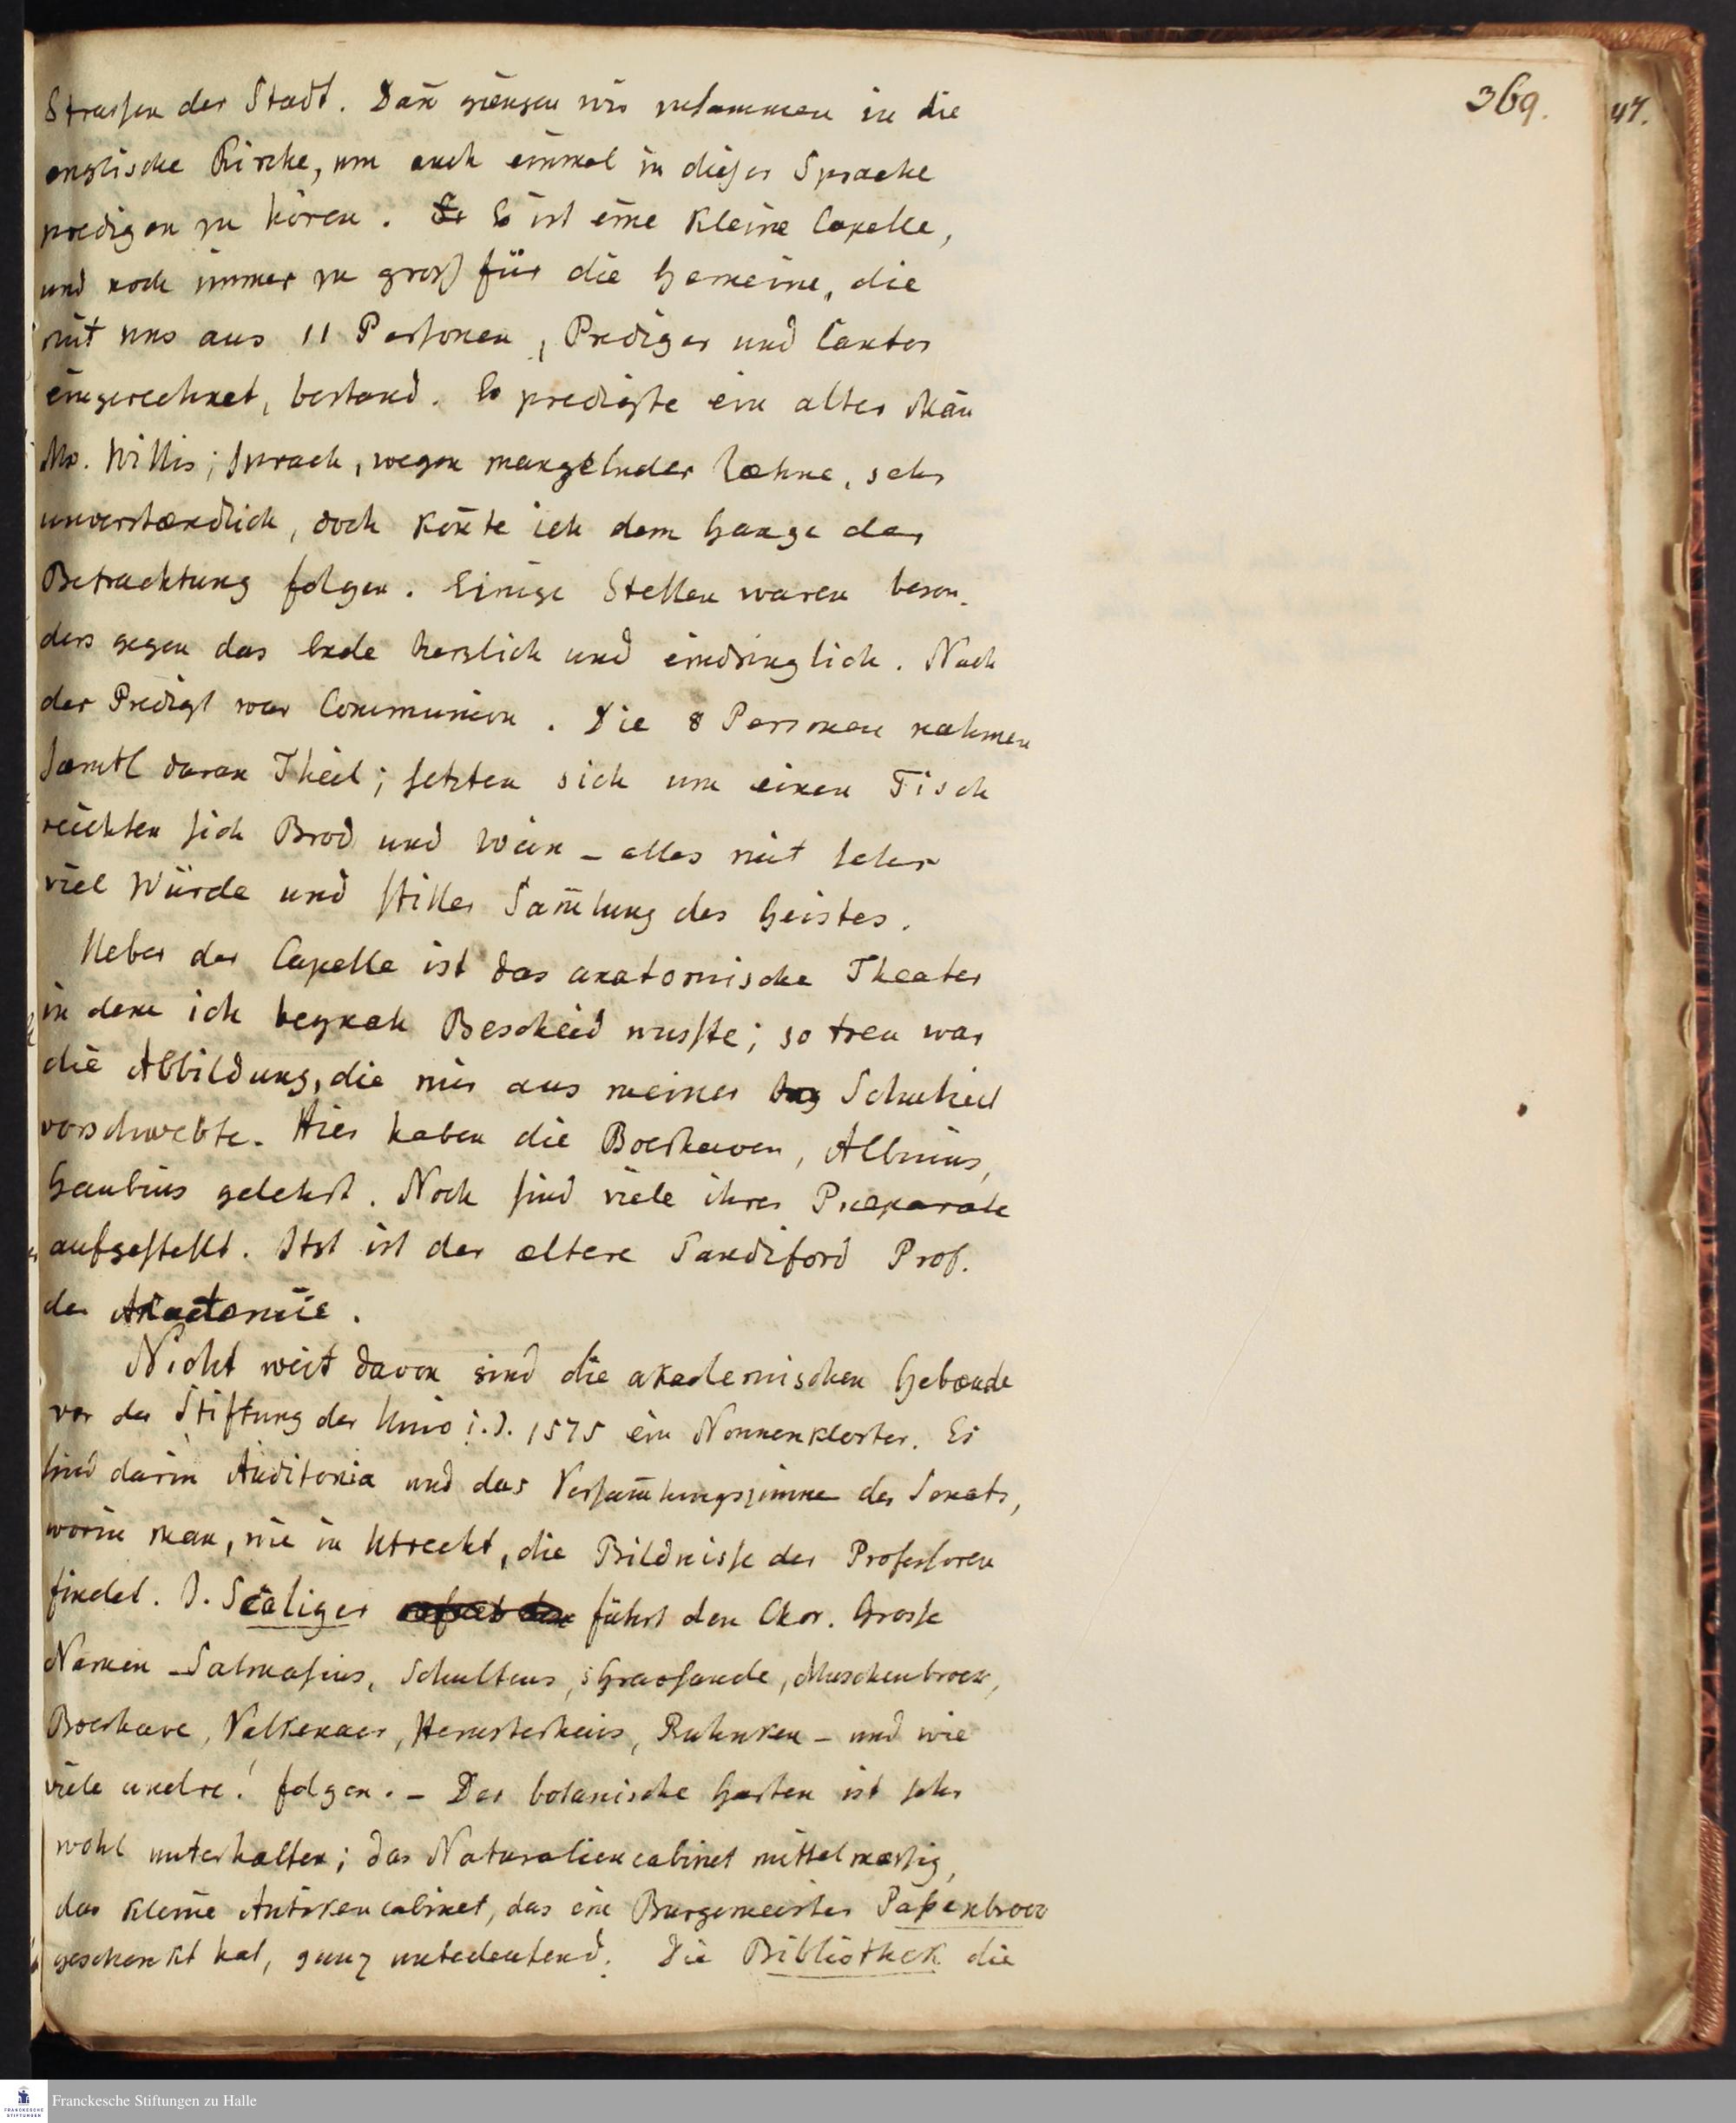 369.
47.
Strassen der Stadt. Dañ giengen wir zusammen in die
englische Kirche, um auch einmal in dieser Sprache
predigen zu hören. Es ist eine kleine Capelle,
und noch immer zu groß für die Gemeine, die
mit uns aus 11 Personen, Prediger und Cantor
eingerechnet, bestand. Es predigte ein alter Mañ
Mr. Willis; sprach, wegen mangelnder Zæhne, sehr
unverstændlich, doch koñte ich dem Gange der
Betrachtung folgen. Einige Stellen waren beson-
ders gegen das Ende herzlich und eindringlich. Nach
der Predigt war Communion. Die 8 Personen nahmen
sæmtl daran Theil; setzten sich um einen Tisch
reichten sich Brod und Wein – alles mit sehr
viel Würde und stiller Sam̃lung des Geistes.
Ueber der Capelle ist das anatomische Theater
in dem ich beynah Bescheid wusste; so treu war
die Abbildung, die mir aus meiner Schulzeit
vorschwebte. Hier haben die Boerhaven, Albinus,
Gaubius gelehrt. Noch sind viele ihrer Præparate
aufgestellt. Itzt ist der æltere Sandiford Prof.
der Anatomie.
Nicht weit davon sind die akademischen Gebæude
vor der Stiftung der Univ i.J. 1575 ein Nonnenkloster. Es
sind darin Auditoria und das Versam̃lungszimmer des Senats,
worin man, wie in Utrecht, die Bildnisse der Professoren
findet. J. Scaliger führt den Chor. Grosse
Namen – Salmasius, Schultens, sGravesande, Muschenbroek,
Boerhave, Valkenaer, Hemsterheuis, Ruhnken – und wie
viele andre! folgen. – Der botanische Garten ist sehr
wohl unterhalten; das Naturaliencabinet mittelmæssig,
das kleine Antikencabinet, das ein Burgemeister Papenbroek
geschenkt hat, ganz unbedeutend. Die Bibliothek die
Franckesche Stiftungen zu Halle